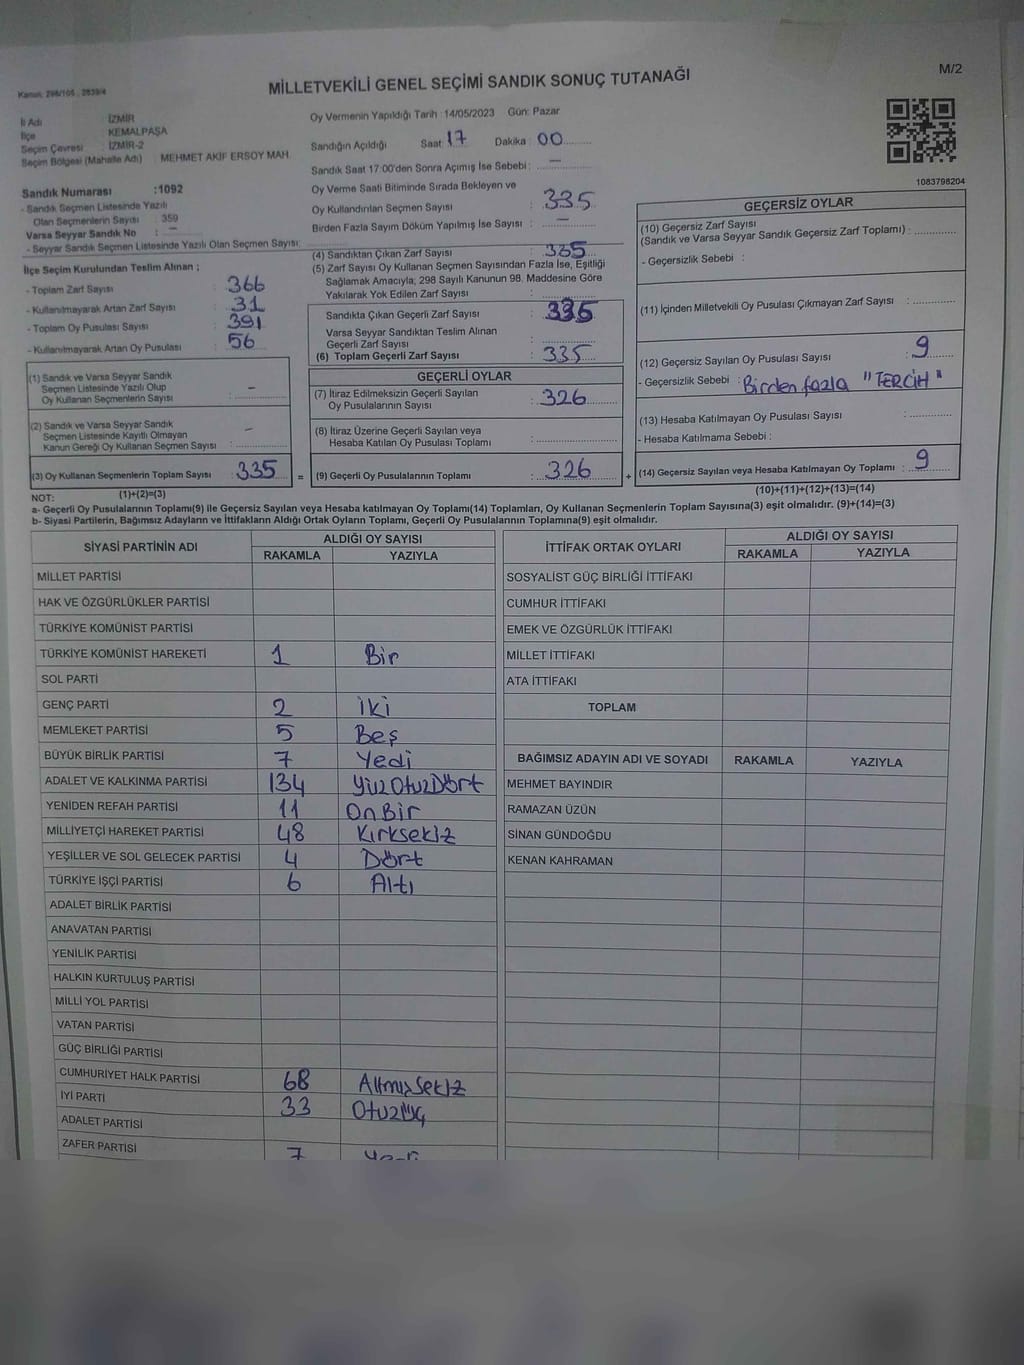 M/2
Kanun: 298/105 , 2839/4
MİLLETVEKİLİ GENEL SEÇİMİ SANDIK SONUÇ TUTANAĞI
İl Adı İZMİR
İlçe KEMALPAŞA
Seçim Çevresi : İZMİR-2
Seçim Bölgesi (Mahalle Adı) : MEHMET AKİF ERSOY MAH.
Sandık Numarası :1092
- Sandık Seçmen Listesinde Yazılı
Olan Seçmenlerin Sayısı : 359
Varsa Seyyar Sandık No : —
- Seyyar Sandık Seçmen Listesinde Yazılı Olan Seçmen Sayısı:
İlçe Seçim Kurulundan Teslim Alınan ;
- Toplam Zarf Sayısı : 366
- Kullanılmayarak Artan Zarf Sayısı : 31
- Toplam Oy Pusulası Sayısı : 391
- Kullanılmayarak Artan Oy Pusulası : 56
(1) Sandık ve Varsa Seyyar Sandık
Seçmen Listesinde Yazılı Olup
Oy Kullanan Seçmenlerin Sayısı : —
(2) Sandık ve Varsa Seyyar Sandık
Seçmen Listesinde Kayıtlı Olmayan
Kanun Gereği Oy Kullanan Seçmen Sayısı : —
(3) Oy Kullanan Seçmenlerin Toplam Sayısı : 335
Oy Vermenin Yapıldığı Tarih : 14/05/2023 Gün: Pazar
Sandığın Açıldığı Saat: 17 Dakika : 00
Sandık Saat 17:00'den Sonra Açımış İse Sebebi : —
Oy Verme Saati Bitiminde Sırada Bekleyen ve
Oy Kullandırılan Seçmen Sayısı : 335
Birden Fazla Sayım Döküm Yapılmış İse Sayısı : —
(4) Sandıktan Çıkan Zarf Sayısı : 335
(5) Zarf Sayısı Oy Kullanan Seçmen Sayısından Fazla İse, Eşitliği
Sağlamak Amacıyla, 298 Sayılı Kanunun 98. Maddesine Göre
Yakılarak Yok Edilen Zarf Sayısı :
Sandıkta Çıkan Geçerli Zarf Sayısı : 335
Varsa Seyyar Sandıktan Teslim Alınan
Geçerli Zarf Sayısı :
(6) Toplam Geçerli Zarf Sayısı : 335
GEÇERLİ OYLAR
(7) İtiraz Edilmeksizin Geçerli Sayılan
Oy Pusulalarının Sayısı : 326
(8) İtiraz Üzerine Geçerli Sayılan veya
Hesaba Katılan Oy Pusulası Toplamı :
= (9) Geçerli Oy Pusulalarının Toplamı : 326 +
1083798204
GEÇERSİZ OYLAR
(10) Geçersiz Zarf Sayısı
(Sandık ve Varsa Seyyar Sandık Geçersiz Zarf Toplamı) :
- Geçersizlik Sebebi :
(11) İçinden Milletvekili Oy Pusulası Çıkmayan Zarf Sayısı :
(12) Geçersiz Sayılan Oy Pusulası Sayısı : 9
- Geçersizlik Sebebi : Birden fazla "TERCİH"
(13) Hesaba Katılmayan Oy Pusulası Sayısı :
- Hesaba Katılmama Sebebi :
(14) Geçersiz Sayılan veya Hesaba Katılmayan Oy Toplamı : 9
NOT: (1)+(2)=(3) (10)+(11)+(12)+(13)=(14)
a- Geçerli Oy Pusulalarının Toplamı(9) ile Geçersiz Sayılan veya Hesaba katılmayan Oy Toplamı(14) Toplamları, Oy Kullanan Seçmenlerin Toplam Sayısına(3) eşit olmalıdır. (9)+(14)=(3)
b- Siyasi Partilerin, Bağımsız Adayların ve İttifakların Aldığı Ortak Oyların Toplamı, Geçerli Oy Pusulalarının Toplamına(9) eşit olmalıdır.
SİYASİ PARTİNİN ADI ALDIĞI OY SAYISI
RAKAMLA YAZIYLA
MİLLET PARTİSİ
HAK VE ÖZGÜRLÜKLER PARTİSİ
TÜRKİYE KOMÜNİST PARTİSİ
TÜRKİYE KOMÜNİST HAREKETİ 1 Bir
SOL PARTİ
GENÇ PARTİ 2 İki
MEMLEKET PARTİSİ 5 Beş
BÜYÜK BİRLİK PARTİSİ 7 Yedi
ADALET VE KALKINMA PARTİSİ 134 YüzOtuzDört
YENİDEN REFAH PARTİSİ 11 OnBir
MİLLİYETÇİ HAREKET PARTİSİ 48 Kırksekiz
YEŞİLLER VE SOL GELECEK PARTİSİ 4 Dört
TÜRKİYE İŞÇİ PARTİSİ 6 Altı
ADALET BİRLİK PARTİSİ
ANAVATAN PARTİSİ
YENİLİK PARTİSİ
HALKIN KURTULUŞ PARTİSİ
MİLLİ YOL PARTİSİ
VATAN PARTİSİ
GÜÇ BİRLİĞİ PARTİSİ
CUMHURİYET HALK PARTİSİ 68 AltmışSekiz
İYİ PARTİ 33 OtuzÜç
ADALET PARTİSİ
ZAFER PARTİSİ 7 Yedi
İTTİFAK ORTAK OYLARI ALDIĞI OY SAYISI
RAKAMLA YAZIYLA
SOSYALİST GÜÇ BİRLİĞİ İTTİFAKI
CUMHUR İTTİFAKI
EMEK VE ÖZGÜRLÜK İTTİFAKI
MİLLET İTTİFAKI
ATA İTTİFAKI
TOPLAM
BAĞIMSIZ ADAYIN ADI VE SOYADI RAKAMLA YAZIYLA
MEHMET BAYINDIR
RAMAZAN ÜZÜN
SİNAN GÜNDOĞDU
KENAN KAHRAMAN